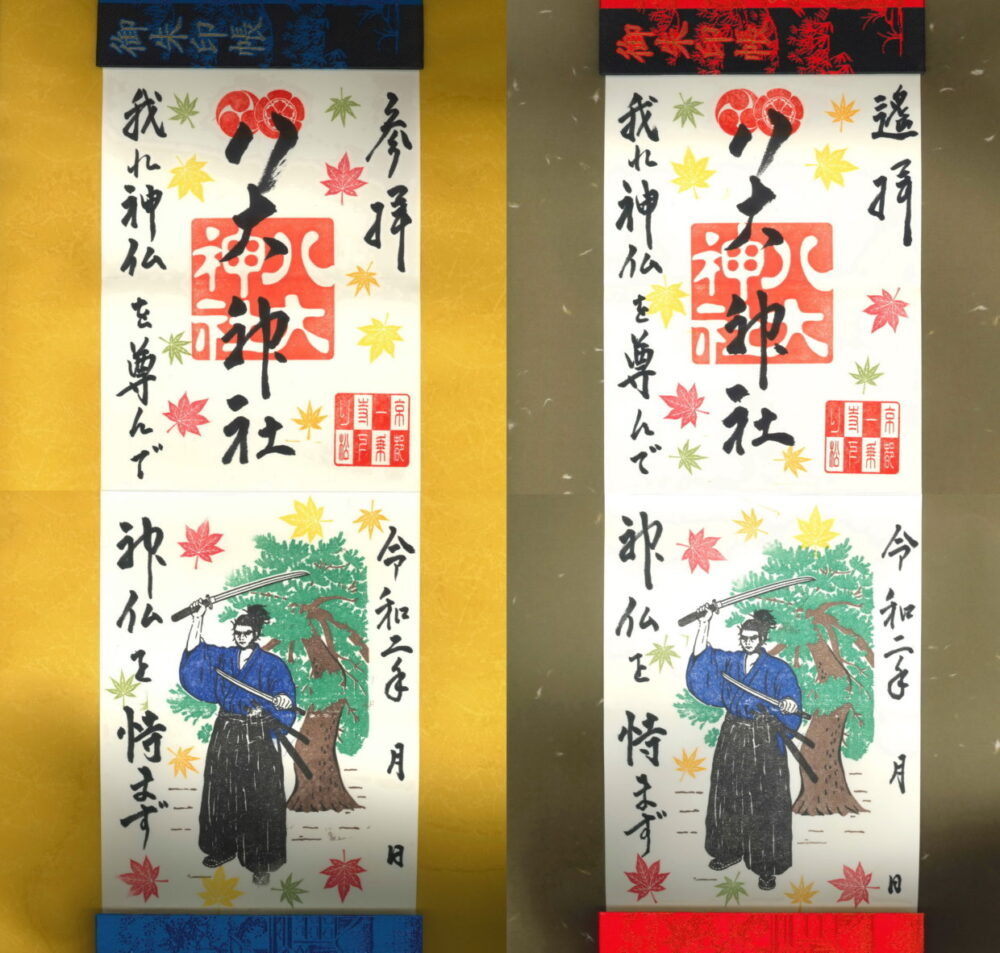 御朱印帳
参拝
八大神社
八大神社
京都一乗寺下り松
我れ神仏を尊んで
令和二年 月 日
神仏を恃まず
御朱印帳
遙拝
八大神社
八大神社
京都一乗寺下り松
我れ神仏を尊んで
令和二年 月 日
神仏を恃まず